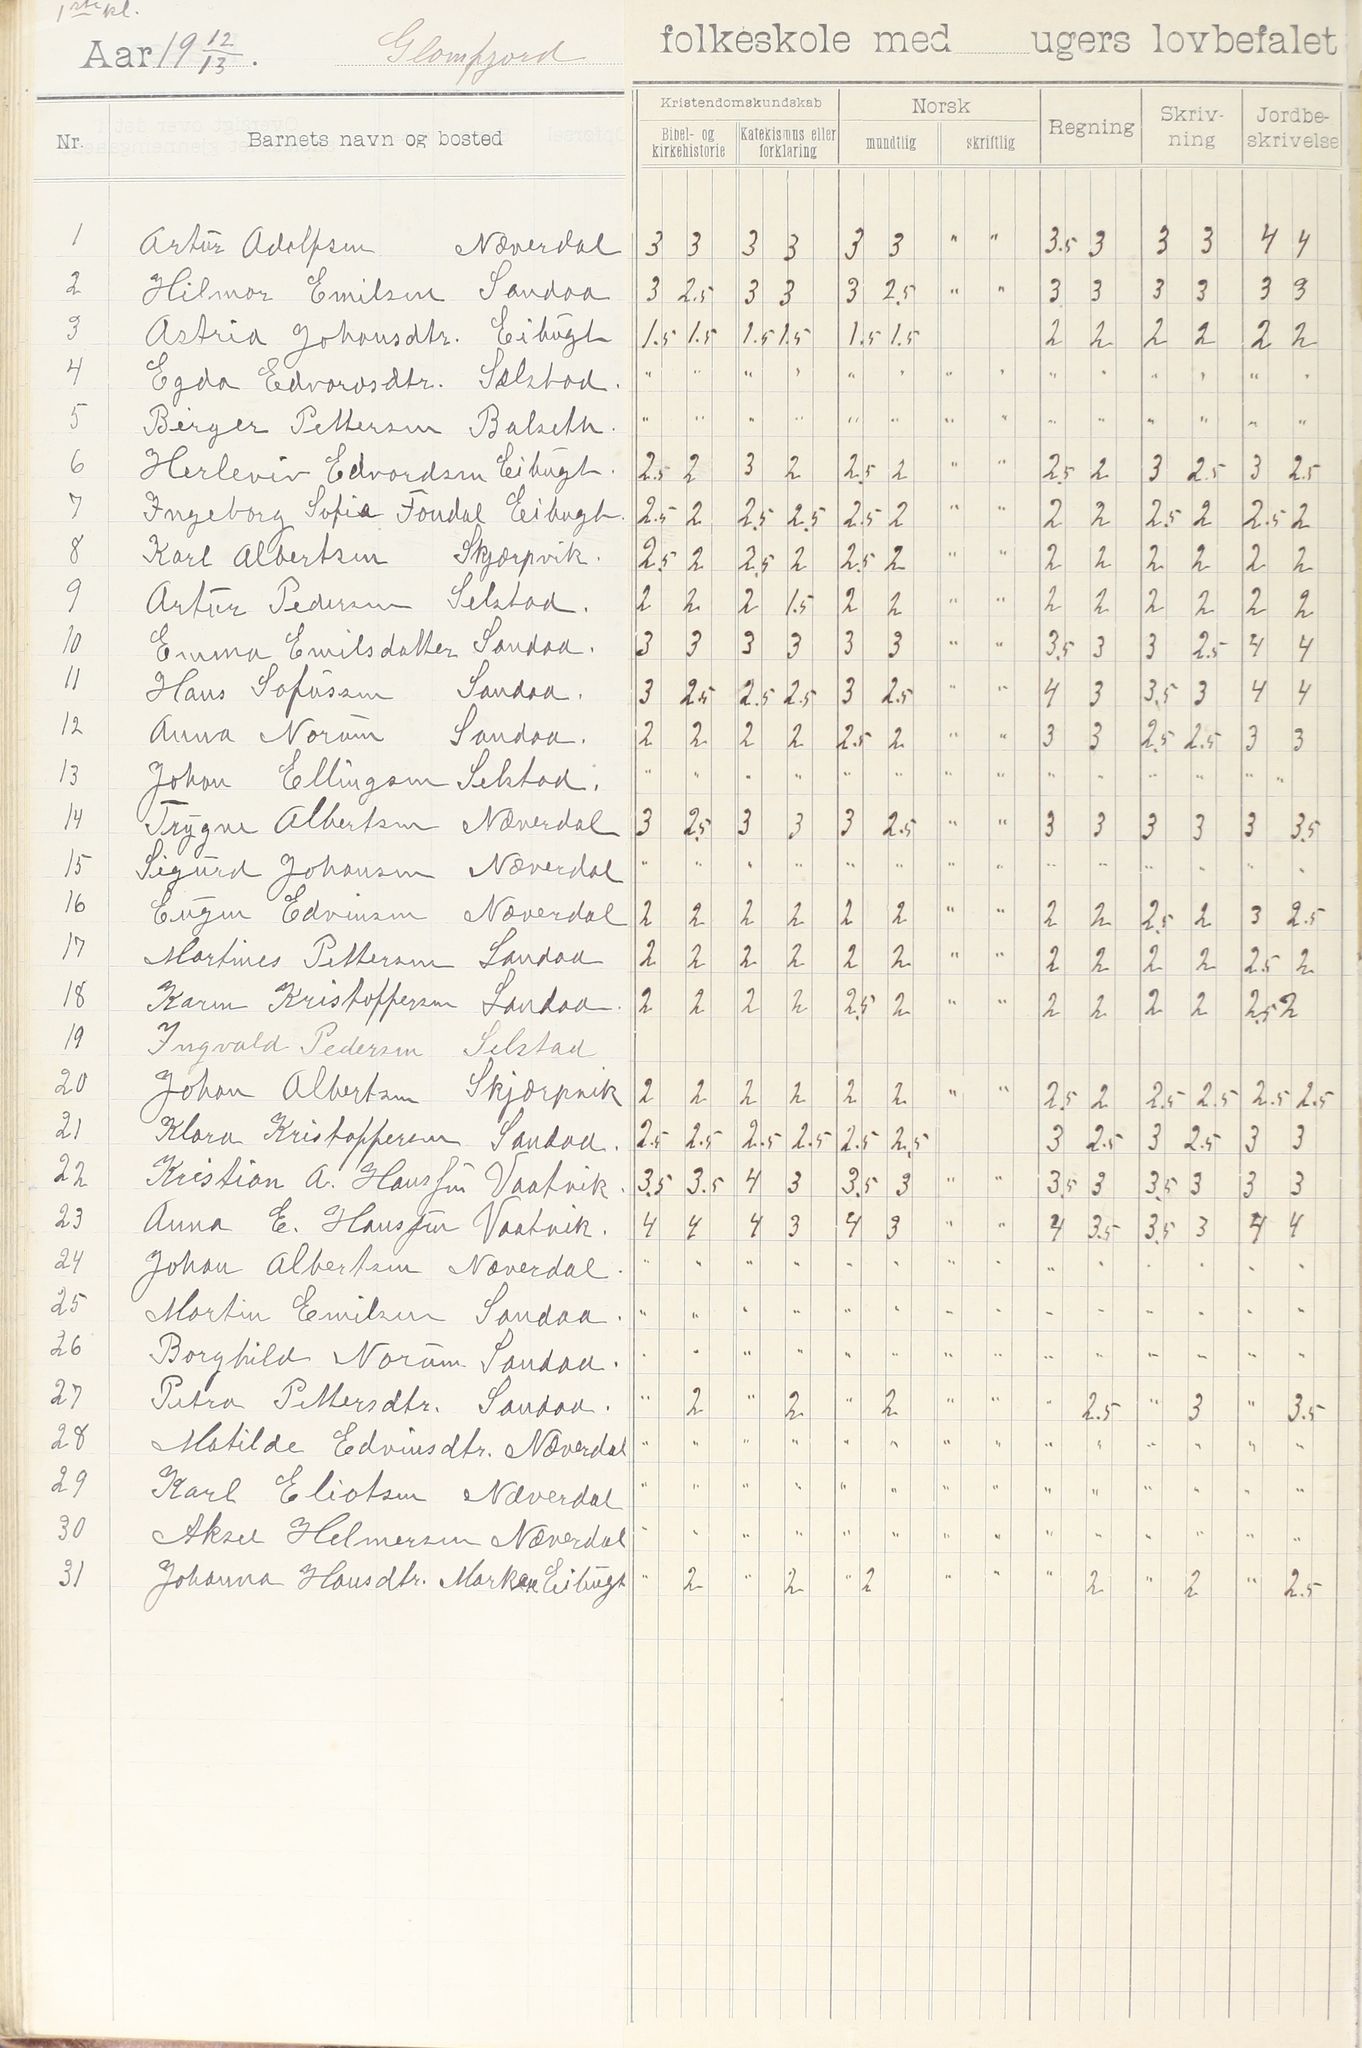 1ste kl.
Aar 19 12/13. Glomfjord folkeskole med ugers lovbefalet
Nr. Barnets navn og bosted Kristendomskundskab Norsk Regning Skriv-ning Jordbe-skrivelse
Bibel- og kirkehistorie Katekismus eller forklaring mundtlig skriftlig
1 Artur Adolfsen Næverdal 3 3 3 3 3 3 " " 3.5 3 3 3 4 4
2 Hilmar Emilsen Sandaa 3 2.5 3 3 3 2.5 " " 3 3 3 3 3 3
3 Astrid Johansdtr. Eibugt 1.5 1.5 1.5 1.5 1.5 1.5 2 2 2 2 2 2
4 Egda Edvardsdtr. Selstad. " " " " " " " " " " " " " "
5 Birger Pettersen Balseth. " " " " " " " " " " " " " "
6 Herleviv Edvardsen Eibugt. 2.5 2 3 2 2.5 2 " " 2.5 2 3 2.5 3 2.5
7 Ingeborg Sofia Fondal Eibugt. 2.5 2 2.5 2.5 2.5 2 " " 2 2 2.5 2 2.5 2
8 Karl Albertsen Skjærpvik. 2.5 2 2.5 2 2.5 2 " " 2 2 2 2 2 2
9 Artur Pedersen Selstad. 2 2 2 1.5 2 2 " " 2 2 2 2 2 2
10 Emma Emilsdatter Sandaa. 3 3 3 3 3 3 " " 3.5 3 3 2.5 4 4
11 Hans Sofussen Sandaa. 3 2.5 2.5 2.5 3 2.5 " " 4 3 3.5 3 4 4
12 Anna Norum Sandaa. 2 2 2 2 2.5 2 " " 3 3 2.5 2.5 3 3
13 Johan Ellingsen Selstad. " " " " " " " " " " " " " "
14 Trygve Albertsen Næverdal 3 2.5 3 3 3 2.5 " " 3 3 3 3 3 3.5
15 Sigurd Johansen Næverdal " " " " " " " " " " " " " "
16 Eugen Edvinsen Næverdal 2 2 2 2 2 2 " " 2 2 2.5 2 3 2.5
17 Martines Pettersen Sandaa 2 2 2 2 2 2 " " 2 2 2 2 2.5 2
18 Karen Kristoffersen Sandaa. 2 2 2 2 2.5 2 " " 2 2 2 2 2.5 2
19 Ingvald Pedersen Selstad
20 Johan Albertsen Skjærpvik 2 2 2 2 2 2 " " 2.5 2 2.5 2.5 2.5 2.5
21 Klara Kristoffersen Sandaa. 2.5 2.5 2.5 2.5 2.5 2.5 3 2.5 3 2.5 3 3
22 Kristian A. Hanssen Vaatvik. 3.5 3.5 4 3 3.5 3 " " 3.5 3 3.5 3 3 3
23 Anna E. Hanssen Vaatvik. 4 4 4 3 4 3 " " 4 3.5 3.5 3 4 4
24 Johan Albertsen Næverdal. " " " " " " " " " " " " " "
25 Martin Emilsen Sandaa. " " " " " " " " " " " " " "
26 Borghild Norum Sandaa. " " " " " " " " " " " " " "
27 Petra Pettersdtr. Sandaa. " 2 " 2 " 2 " " " 2.5 " 3 " 3.5
28 Matilde Edvinsdtr. Næverdal " " " " " " " " " " " " " "
29 Karl Eliotsen Næverdal " " " " " " " " " " " " " "
30 Aksel Helmersen Næverdal " " " " " " " " " " " " " "
31 Johanna Hansdtr. Marken Eibugt " 2 " 2 " 2 " " " 2 " 2 " 2.5